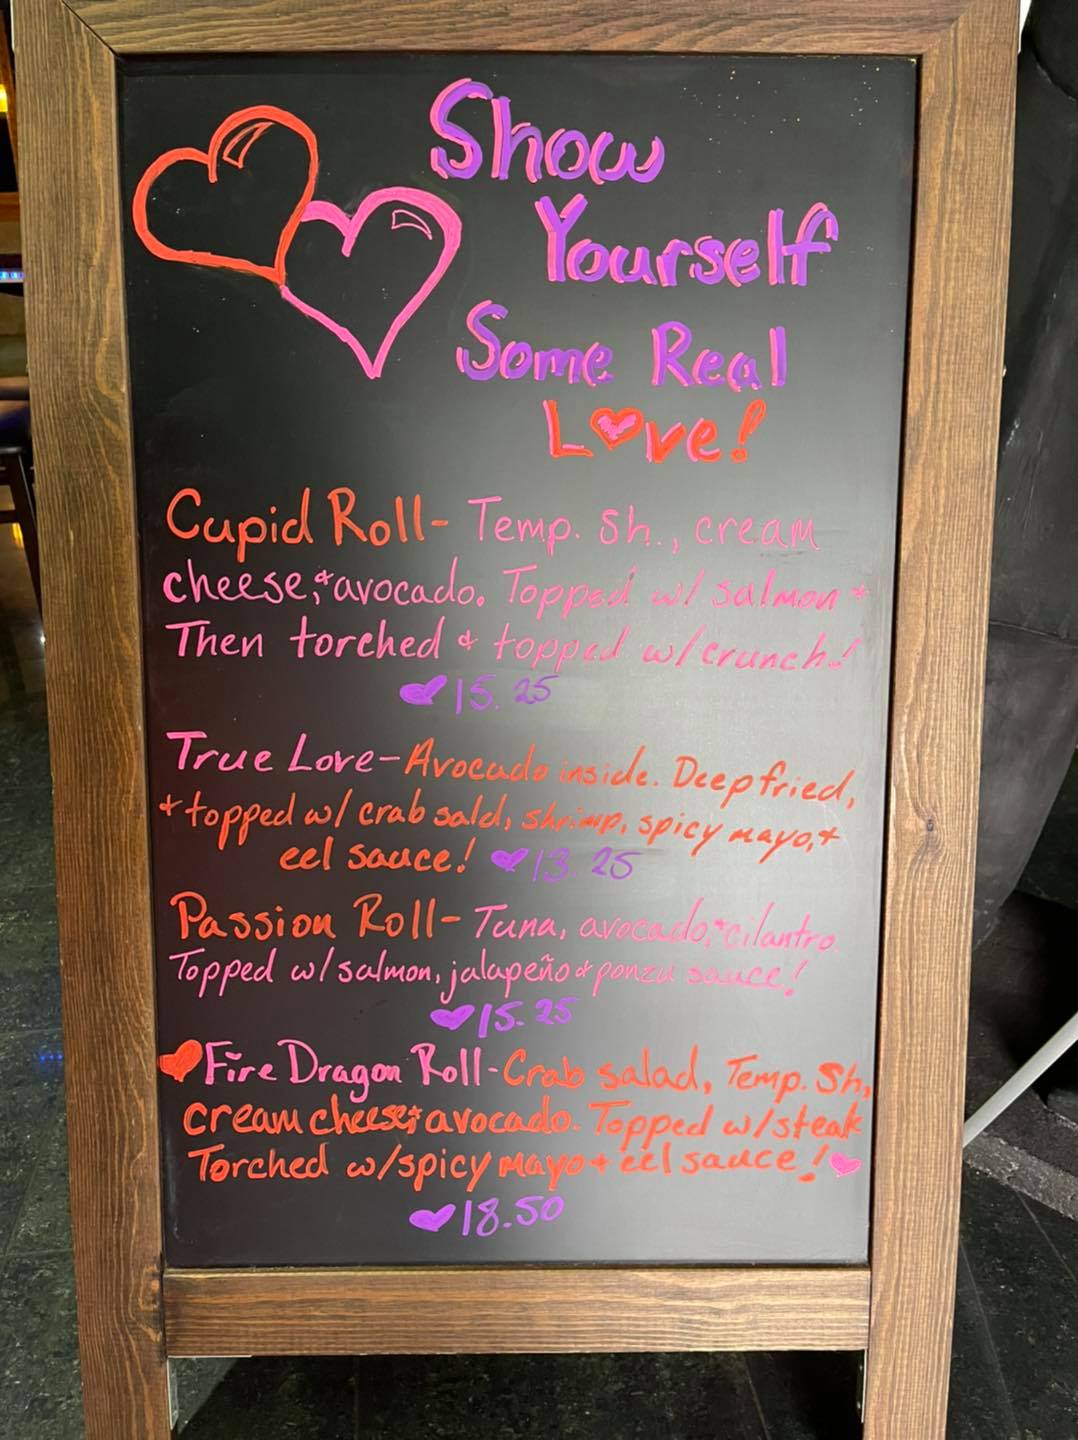 Show
Yourself
Some Real
Love!
Cupid Roll- Temp. Sh., cream
cheese, & avocado. Topped w/ salmon &
Then torched & topped w/ crunch!
15.25
True Love- Avocado inside. Deep fried,
& topped w/ crab sald, shrimp, spicy mayo, &
eel sauce! 13.25
Passion Roll- Tuna, avocado, & cilantro.
Topped w/ salmon, jalapeño & ponzu sauce!
15.25
Fire Dragon Roll- Crab salad, Temp. Sh,
cream cheese, & avocado. Topped w/ steak
Torched w/ spicy mayo & eel sauce!
18.50